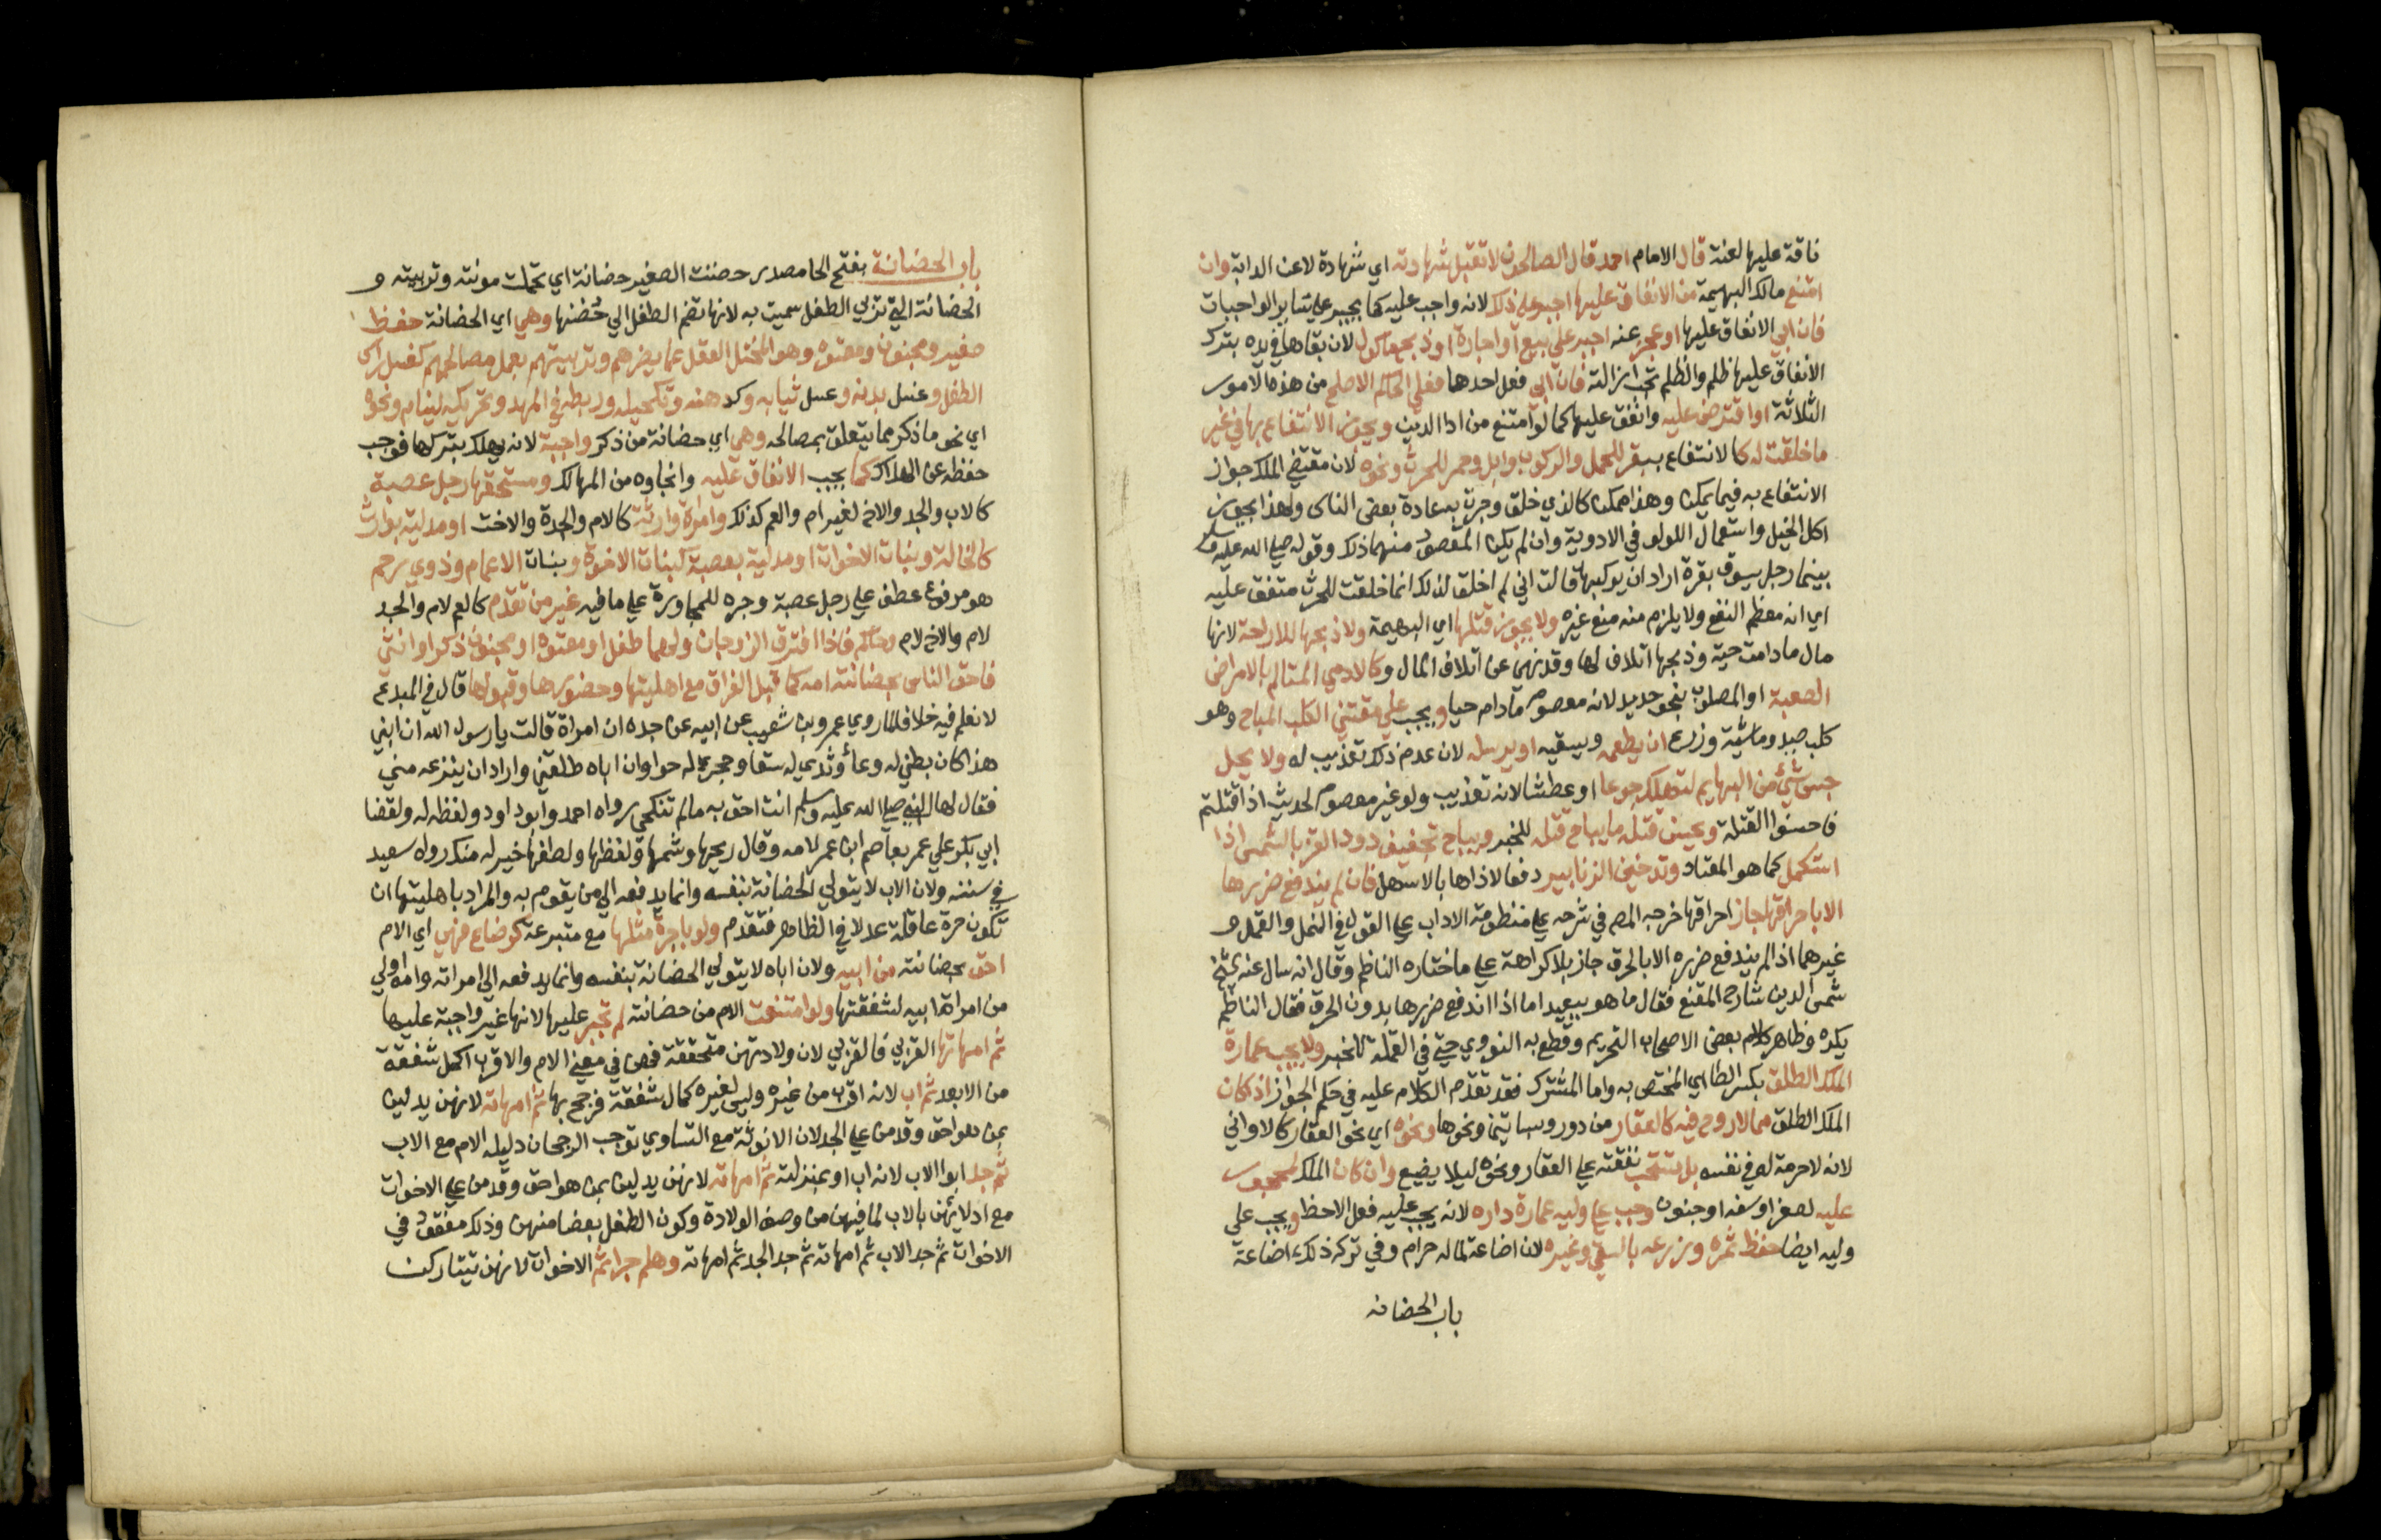 ناقة عليها لعنة قال الامام احمد قال الصالحون لا تقبل شهادته اي شهادة لاعن الدابة وان
امتنع مالك البهيمة من الانفاق عليها اجبر على ذلك لانه واجب عليه كما يجبر على ساير الواجبات
فان ابي الانفاق عليها او عجز عنه اجبر على بيع او اجارة او ذبح ماكول لان بقاها في يده بترك
الانفاق عليها ظلم والظلم تجب ازالته فان ابى فعل احدها فعل الحاكم الاصلح من هذه الامور
الثلاثة او اقترض عليه وانفق عليها كما لو امتنع من ادا الدين ويجوز الانتفاع بها في غير
ما خلقت له كالانتفاع ببقر للحمل والركوب وابل وحمر للحرث ونحوه لان مقتضي الملك جواز
الانتفاع به فيما يمكن وهذا ممكن كالذي خلق وجرت به عادة بعض الناس ولهذا يجوز
اكل الخيل واستعمال اللولو في الادوية وان لم يكن المقصود منهما ذلك وقوله صلى الله عليه وسلم
بينما رجل يسوق بقرة اراد ان يركبها قالت اني لم اخلق لذلك انما خلقت للحرث متفق عليه
اي انه معظم النفع ولا يلزم منه منع غيره ولا يجوز قتلها اي البهيمة ولا ذبحها للاراحة لانها
مال ما دامت حية وذبحها اتلاف لها وقد نهي عن اتلاف المال وكالادمي المتالم بالامراض
الصعبة او المصلوب بنحو حديد لانه معصوم ما دام حيا ويجب على مقتني الكلب المباح وهو
كلب صيد وماشية وزرع ان يطعمه ويسقيه او يرسله لان عدم ذلك تعذيب له ولا يحل
حبس شيء من البهايم لتهلك جوعا او عطشا لانه تعذيب ولو غير معصوم لحديث اذا قتلتم
فاحسنوا القتلة ويحسن قتلة ما يباح قتله للخبر ويباح تجفيف دود القز بالشمس اذا
استكمل كما هو المعتاد وتدخين الزنابير دفعا لاذاها بالاسهل فان لم يندفع ضررها
الا باحراقها جاز احراقها خرجه المص في شرحه على منظومة الاداب على القول في النمل والقمل و
غيرهما اذا لم يندفع ضرره الا بالحرق جاز بلا كراهة على ما اختاره الناظم وقال انه سال عنه الشيخ
شمس الدين شارح المقنع فقال ما هو ببعيد اما اذا اندفع ضررها بدون الحرق فقال الناظم
يكره وظاهر كلام بعض الاصحاب التحريم وقطع به النووي حتى في القملة للخبر ولا يجب عمارة
الملك الطلق بكسر الطا اي المختص به واما المشترك فقد تقدم الكلام عليه في حكم الجوار اذ كان
الملك الطلق مما لا روح فيه كالعقار من دور وبساتين ونحوها ونحوه اي نحو العقار كالاواني
لانه لا حرمة له في نفسه بل تستحب نفقته على العقار ونحوه ليلا يضيع وان كان الملك لمحجور
عليه لصغر او سفه او جنون وجب على وليه عمارة داره لانه يجب عليه فعل الاحظ ويجب على
وليه ايضا حفظ ثمره وزرعه بالسقي وغيره لان اضاعة لماله حرام وفي تركه ذلك اضاعة
باب الحضانه
باب الحضانة بفتح الحا مصدر حضنت الصغير حضانة اي تحملت مونته وتربيته و
الحضانة التي تربي الطفل سميت به لانها تضم الطفل الي حضنها وهي اي الحضانة حفظ
صغير ومجنون ومعتوه وهو المختل العقل عما يضرهم وتربيتهم بعمل مصالحهم كغسل راس
الطفل وغسل بدنه وغسل ثيابه وكدهنه وتكحيله وربطه في المهد وتحريكه لينام ونحوه
اي نحو ما ذكر مما يتعلق بمصالحه وهي اي حضانة من ذكر واجبة لانه يهلك بتركها فوجب
حفظه عن الهلاك كما يجب الانفاق عليه وانجاوه من المهالك ومستحقها رجل عصبة
كالاب والجد والاخ لغير ام والعم كذلك وامراة وارثة كالام والجدة والاخت او مدلية بوارث
كالخالة وبنات الاخوات او مدلية بعصبة كبنات الاخوة وبنات الاعمام وذوي رحم
هو مرفوع عطف على رجل عصبة وجره للمجاورة على ما فيه غير من تقدم كالعم لام والجد
لام والاخ لام وحاكم فاذا افترق الزوجان ولهما طفل او معتوه او مجنون ذكر او انثى
فاحق الناس بحضانته امه كما قبل الفراق مع اهليتها وحضورها وقبولها قال في المبدع
لا نعلم فيه خلافا لما روي عمرو بن شعيب عن ابيه عن جده ان امراة قالت يا رسول الله ان ابني
هذا كان بطني له وعاء وثدي له سقا وحجري له حوا وان اباه طلقني واراد ان ينزعه مني
فقال لها النبي صلى الله عليه وسلم انت احق به ما لم تنكحي رواه احمد وابو داود ولفظه له ولقضا
ابي بكر على عمر بعاصم ابن عمر لامه وقال ريحها وشمها ولفظها ولطفها خير له منك رواه سعيد
في سننه ولان الاب لا يتولي الحضانة بنفسه وانما يدفعه الي من يقوم به والمراد باهليتها ان
تكون حرة عاقلة عدلا في الظاهر فتقدم ولو باجرة مثلها مع متبرعة كرضاع فهي اي الام
احق بحضانته من ابيه ولان اباه لا يتولي الحضانة بنفسه وانما يدفعه الي امراته وامه اولي
من امراة ابيه لشفقتها ولو امتنعت الام من حضانته لم تجبر عليها لانها غير واجبة عليها
ثم امهاتها القربي فالقربي لان ولادتهن متحققة فهن في معني الام والاقرب اكمل شفقة
من الابعد ثم اب لانه اقرب من غيره وليس لغيره كمال شفقة فرجح بها ثم امهاته لانهن يدلين
بمن هو احق وقدمن على الجد لان الانوثة مع التساوي توجب الرجحان دليله الام مع الاب
ثم جد ابوا الاب لانه اب او بمنزلته ثم امهاته لانهن يدلين بمن هو احق وقدمن على الاخوات
مع ادلائهن بالاب لما فيهن من وصف الولادة وكون الطفل بعضا منهن وذلك مفقود في
الاخوات ثم جد الاب ثم امهاته ثم جد الجد ثم امهاته وهلم جرا ثم الاخوات لانهن يتشاركن